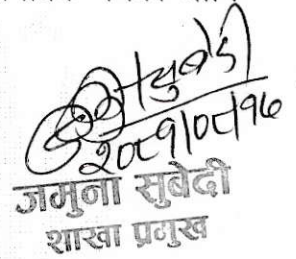 २०८१।०८।१७
जमुना सुबेदी
शाखा प्रमुख